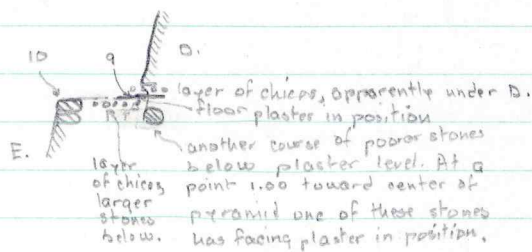 10
9
D.
layer of chicos, apparently under D.
floor plaster in position
another course of poorer stones
below plaster level. At a
point 1.00 toward center of
pyramid one of these stones
has facing plaster in position.
E.
layer
of chicos,
larger
stones
below.